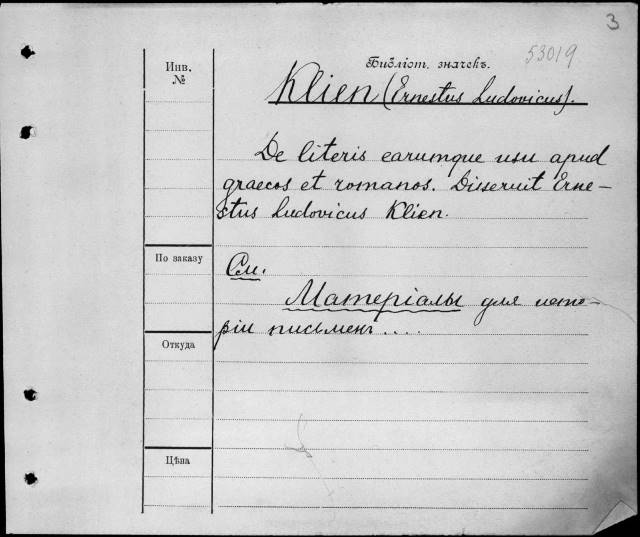 3
53019
Инв.
№
Библіот. значекъ.
Klien (Ernestus Ludovicus).
De literis earumque usu apud
graecos et romanos. Disseruit Erne-
stus Ludovicus Klien.
По заказу
См.
Матеріалы для исто-
ріи письменъ....
Откуда
Цѣна